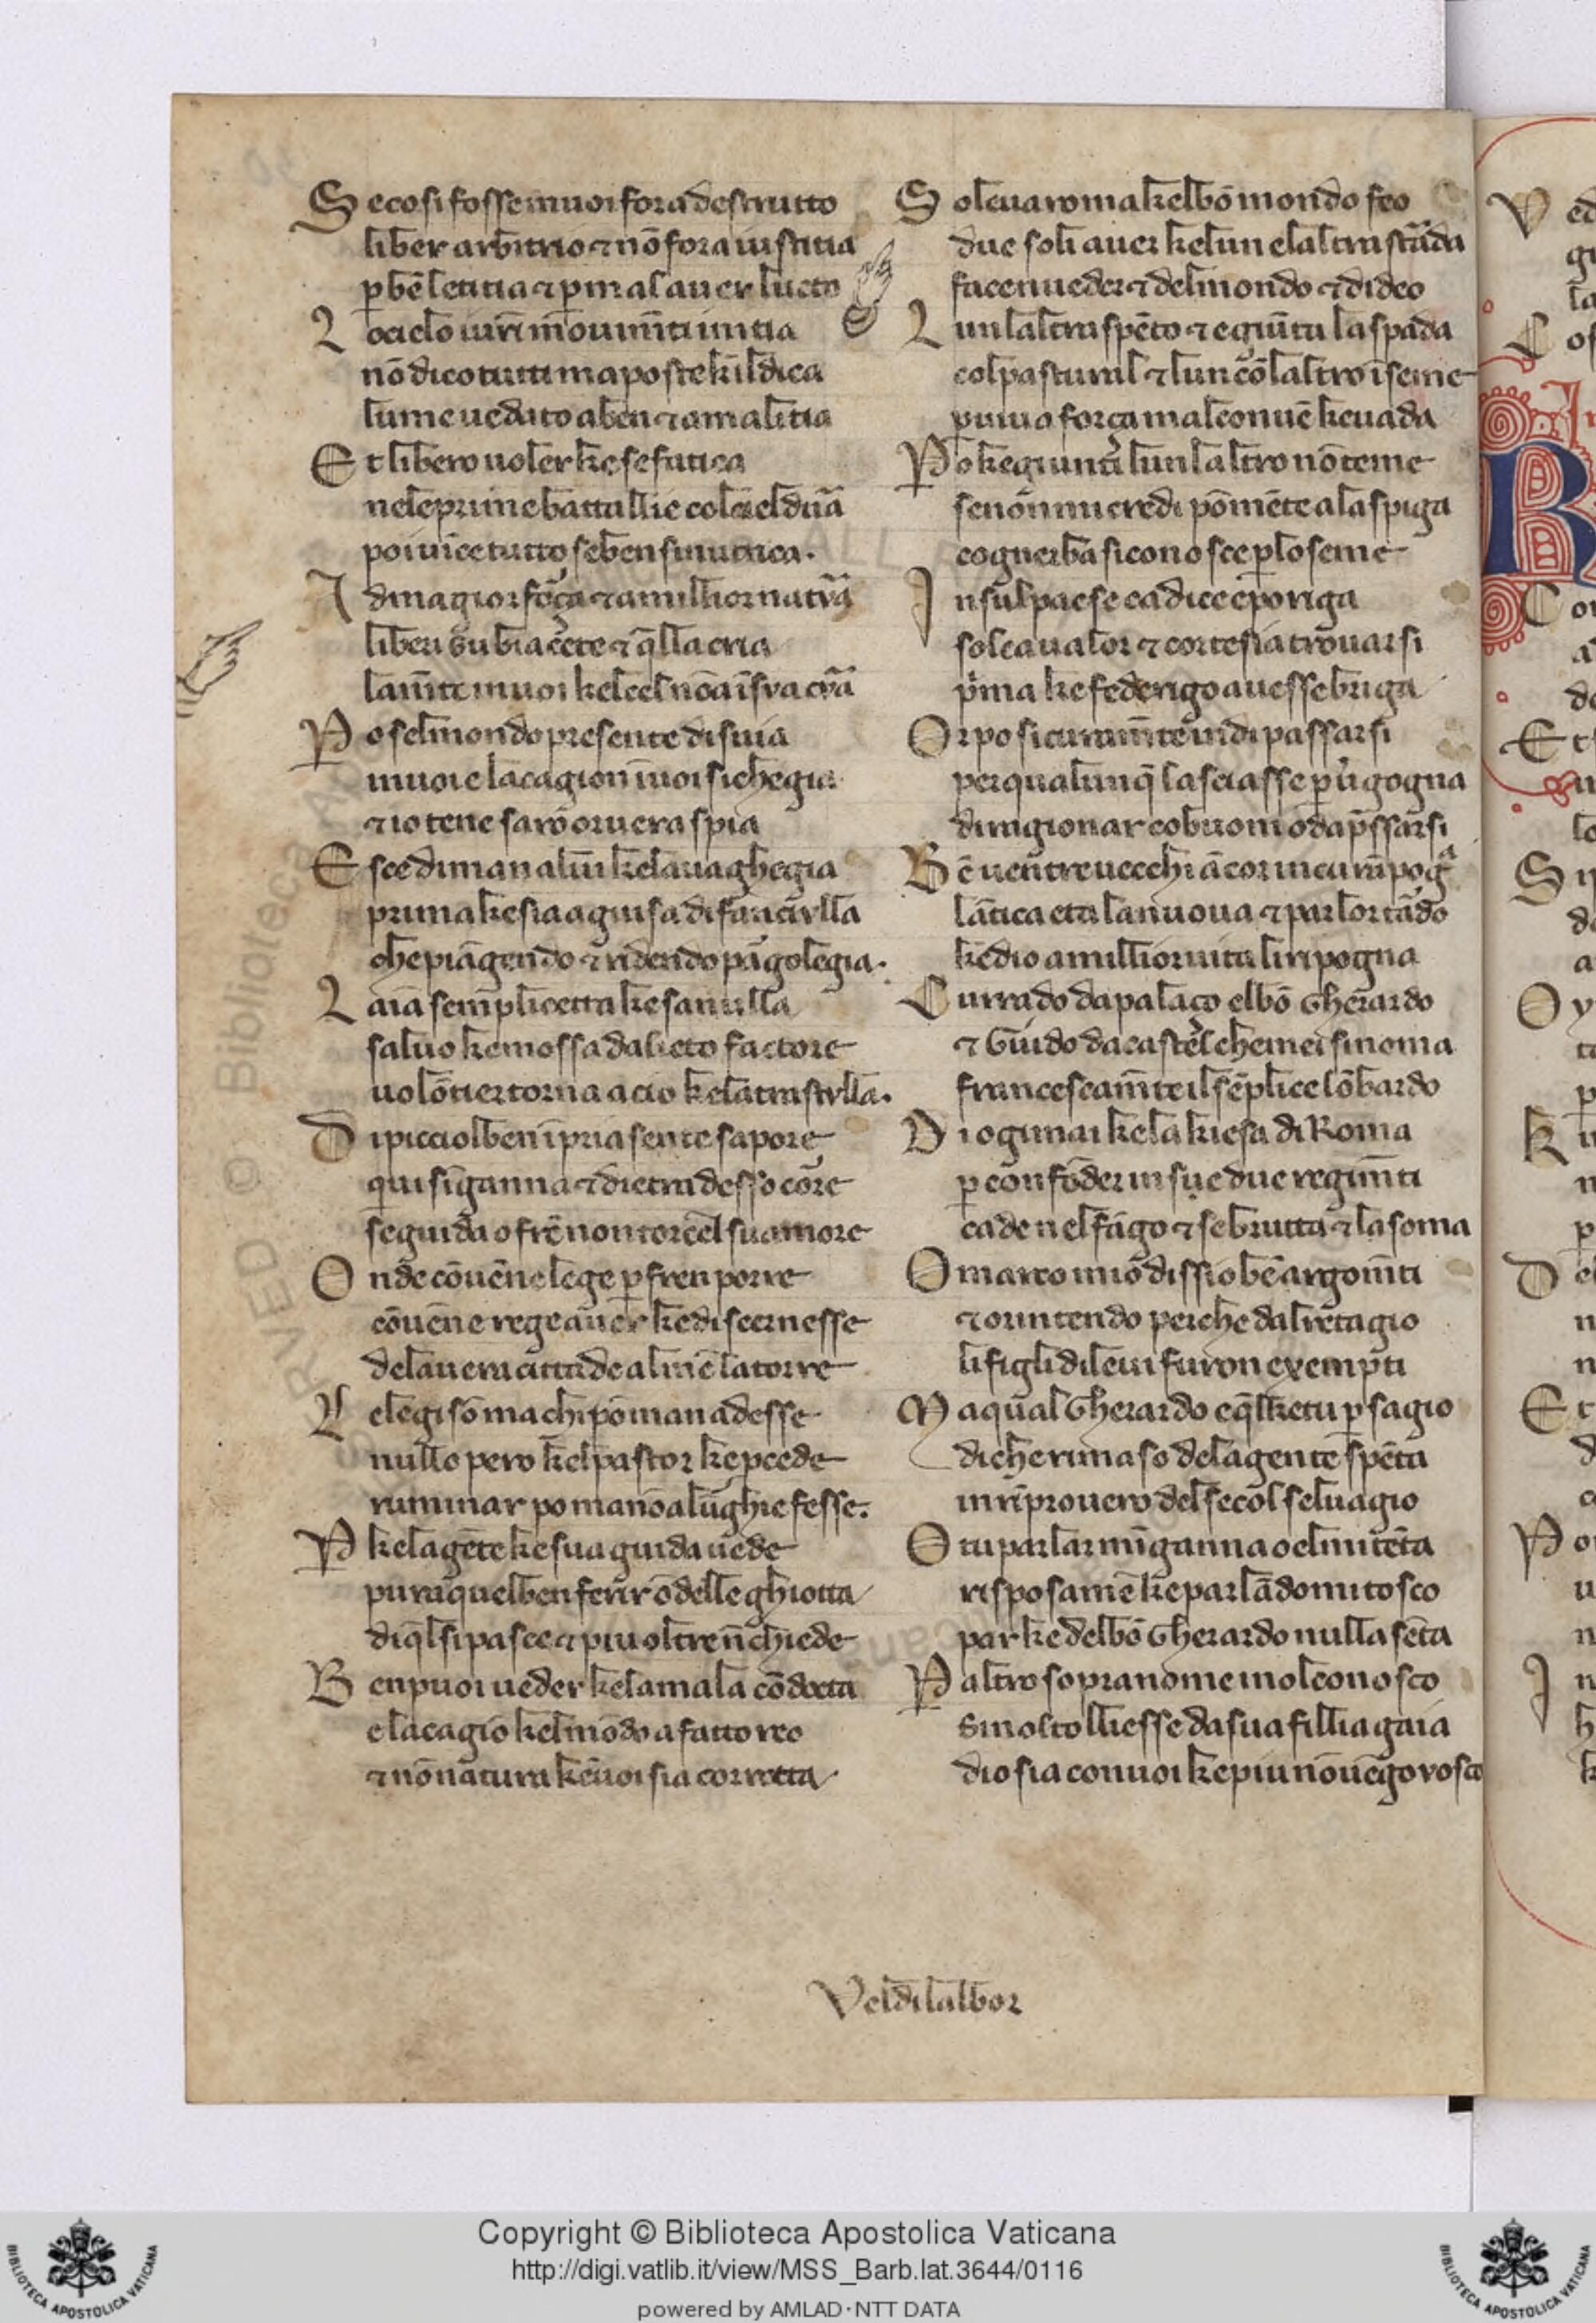 S ecosi fosse inuoi fora destrutto
liber arbitrio ⁊ nō fora iustitia
p bē letitia ⁊ p mal auer lucto
L o cielo iur̄i mouim̄ti initia
nō dico tutti ma poste kil dica
lume ue dato a ben ⁊ a malitia
E t libero uoler ke se fatica
nele prime battallie col ciel dura
poi uice tutto se ben si nutrica.
A dmagior força ⁊ a millior natura
liberi subiacete ⁊ q̄lla cria
lam̄te inuoi kel ciel nō a ī sua cura
P o sel mondo presente disuia
inuoi e la cagion ī uoi si chegia
⁊ io tene saro or uera spia
E sce di man a lui ke la uaghegia
prima ke sia a guisa di fanciulla
che piāgendo ⁊ ridendo pagolegia.
L aīa semplicetta ke sa nulla
saluo ke mossa da lieto factore
uolōtier torna acio ke la trastulla.
D i picciol ben ī pria sente sapore
qui sīganna ⁊ dietra desso core
se guida o frē non torcel su amore
O nde cōuēne lege p fren porre
cōuēne rege auer ke discernesse
de la uera cittade almē la torre
L e legi sō ma chi pō man ad esse
nullo pero kel pastor ke pcede
ruminar po ma nō a lūghie fesse.
P ke la gēte ke sua guida uede
pur a quel ben ferir ōdelle ghiotta
di q̄l si pasce ⁊ piu oltre nō chiede
B en puoi ueder ke la mala cōdocta
e la cagiō kel mōdo a fatto reo
⁊ nō natura kē uoi sia corrotta
S oleua roma kel bō mondo feo
due soli auer kelun e laltra strada
facen ueder ⁊ del mondo ⁊ di deo
L un laltra spēto ⁊ e giūta la spada
col pasturul ⁊ lun cōlaltro īseme
p uiua força mal conuē ke uada
P o ke giunti lun laltro nō teme
se nōn mi credi pō mēte a la spiga
cogn erba si conosce p lo seme
I nsul paese cadice e po riga
solea ualor ⁊ cortesia trouarsi
p̄ma ke federigo auesse briga
O r po sicuram̄te indi passarsi
per qualunq̄ lasciasse p u̓gogna
di ragionar co buoni o dap̄ssarsi
B ē uen tre uecchi ācor in cui rāpogna
lātica eta la nuoua ⁊ par lor tādo
ke dio a millior uita li ripogna
C urrado da palaço el bō Gherardo
⁊ Guido da castel che mei si noma
francescam̄te il sēplice lōbardo
D i ogimai ke la kiesa di Roma
p confōder in sue due regim̄ti
cade nel fāgo ⁊ se brutta ⁊ la soma
O marco mio dissio bē argom̄ti
⁊ or intendo perche dal retagio
li figli di leui furon exempti
M a qual Gherardo e q̄l ke tu p sagio
di che rimaso de la gente spēta
in rīprouero del secol seluagio
O tu parlar mīganna o el mi tēta
rispose a me ke parlādomi tosco
par ke del bō Gherardo nulla sēta
P altro sopranome i nol conosco
S i nol tolliesse da sua fillia gaia
dio sia con uoi ke piu nō uēgo uosco
Vedi lalbor
Copyright © Biblioteca Apostolica Vaticana
http://digi.vatlib.it/view/MSS_Barb.lat.3644/0116
powered by AMLAD·NTT DATA